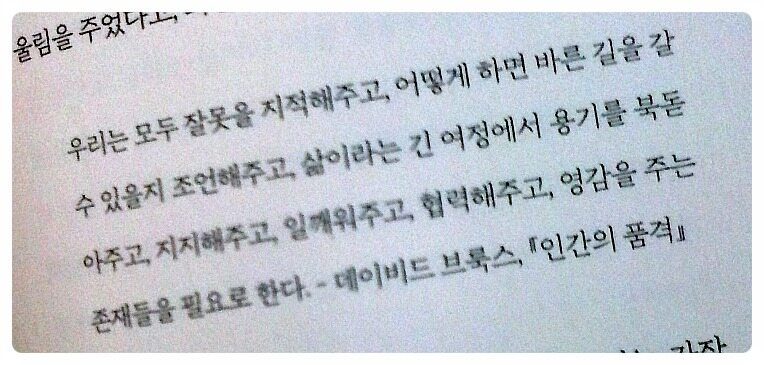 울림을 주었다고,
우리는 모두 잘못을 지적해주고, 어떻게 하면 바른 길을 갈
수 있을지 조언해주고, 삶이라는 긴 여정에서 용기를 북돋
아주고, 지지해주고, 일깨워주고, 협력해주고, 영감을 주는
존재들을 필요로 한다. - 데이비드 브룩스, 『인간의 품격』